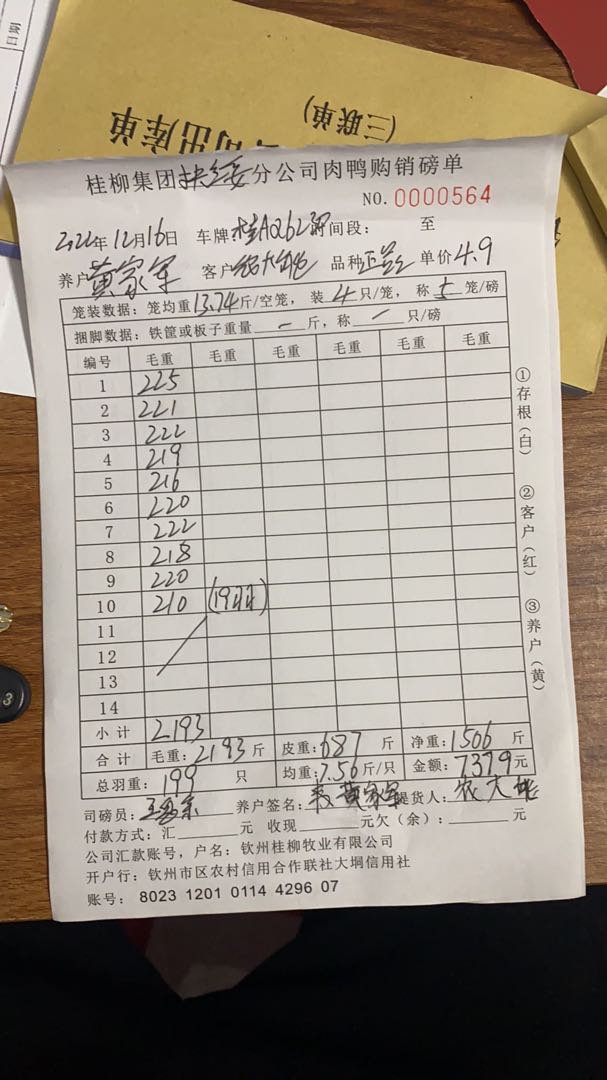 司出库单
(三联单)
桂柳集团扶绥分公司肉鸭购销磅单
NO. 0000564
2022年12月16日 车牌桂AQ62 时间段: 至
养户黄家军 客户农大雄 品种 单价4.9
笼装数据: 笼均重13.74斤/空笼, 装4只/笼, 称5笼/磅
捆脚数据: 铁筐或板子重量—斤, 称—只/磅
编号 毛重 毛重 毛重 毛重 毛重 毛重
1 225
2 221
3 222
4 219
5 216
6 220
7 222
8 218
9 220
10 210 (19羽)
11
12
13
14
小计 2193
合计 毛重:2193斤 皮重:687斤 净重:1506斤
总羽重:199只 均重:7.56斤/只 金额:7379元
司磅员: 养户签名:黄家军 提货人:农大雄
付款方式:汇 元 收现 元欠(余): 元
公司汇款账号, 户名: 钦州桂柳牧业有限公司
开户行: 钦州市区农村信用合作联社大垌信用社
账号: 8023 1201 0114 4296 07
①存根(白)
②客户(红)
③养户(黄)
3